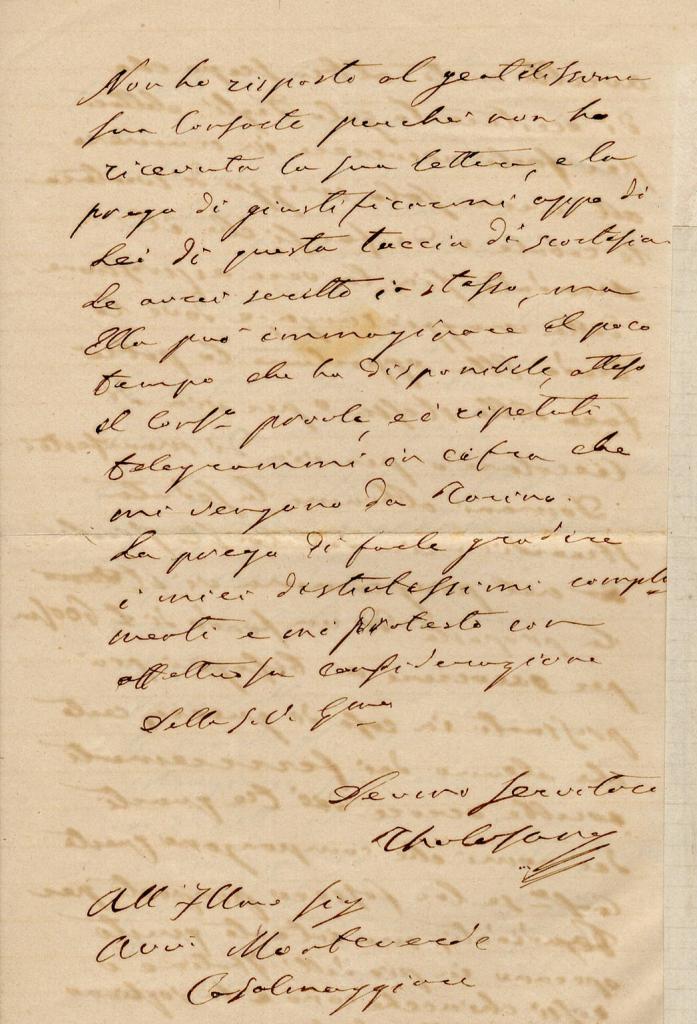 Non ho risposto al gentilissimo
suo Consorte perchè non ho
ricevuta la sua lettera, e la
prego di giustificarmi appo di
Lei di questa taccia di scortesia.
Le avrei scritto io stesso, ma
Ella può immaginare il poco
tempo che ho disponibile, atteso
il e i ripetuti
telegrammi in cifra che
mi vengono da Torino.
La prego di farle gradire
i miei distintissimi compli
menti e mi protesto con
affettuosa considerazione
Della S.V.
Devmo Servitore
Tholosano
All' Illmo Sig
Avv. Monteverde
Casalmaggiore